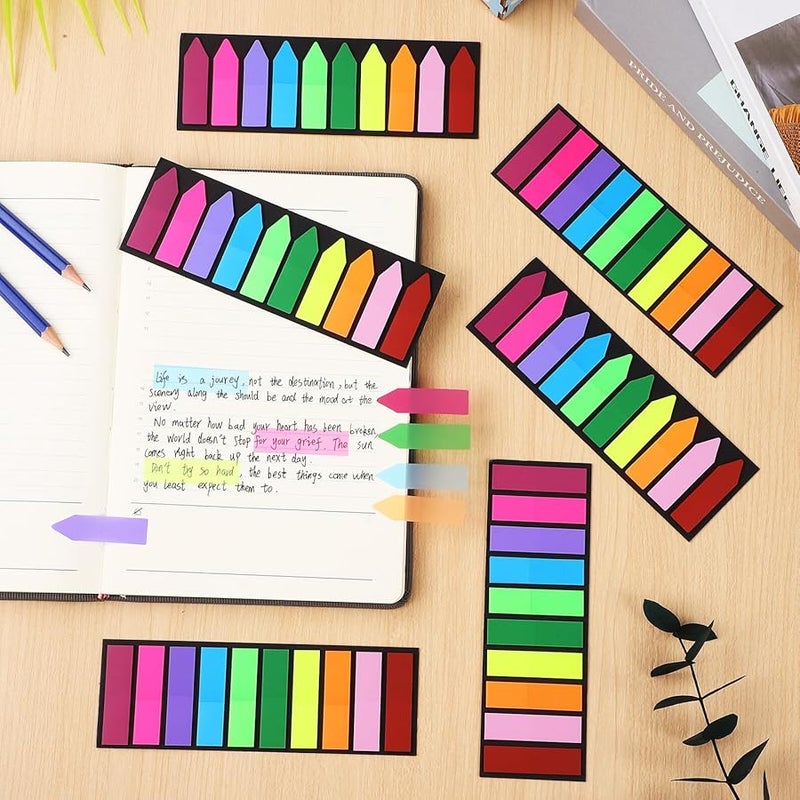 PRIDE AND PREJUDICE
Life is a jourey, not the destination, but the
scenery along the should be and the mood at the
view.
No matter how bad your heart has been broken,
the world doesn't stop for your grief. The sun
comes right back up the next day.
Don't try so hard, the best things come when
you least expect them to.